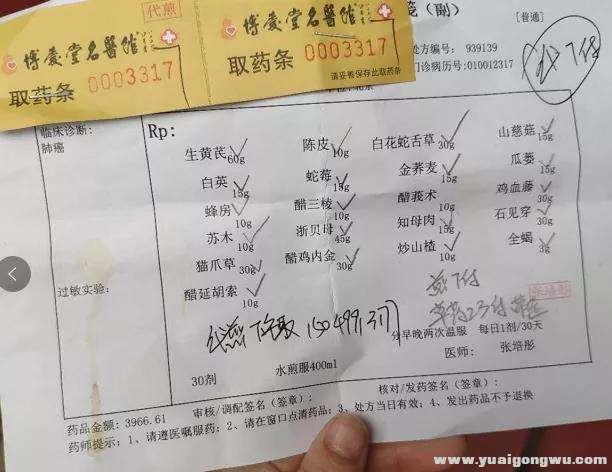 代煎
博爱堂名醫館
博爱堂名醫館
取药条 0003317
取药条 0003317
请妥善保存此取药条
笺（副）
[普通]
处方编号： 939139
门诊病历号:010012317
7付
临床诊断:
肺癌
Rp:
生黄芪 60g 陈皮 10g 白花蛇舌草 30g 山慈菇 15g
白英 15g 蛇莓 15g 金荞麦 15g 瓜蒌 15g
蜂房 10g 醋三棱 10g 醋莪术 10g 鸡血藤 30g
苏木 10g 浙贝母 45g 知母肉 15g 石见穿 30g
猫爪草 30g 醋鸡内金 30g 炒山楂 10g 全蝎 3g
过敏实验:
醋延胡索 10g
煎7付
张培彤
分早晚两次温服 每日1剂/30天
30剂 水煎服400ml
医师： 张培彤
药品金额: 3966.61 审核/调配签名（签章）: 核对/发药签名（签章）:
药师提示：1、请遵医嘱服药；2、请在窗口点清药品；3、处方当日有效；4、发出药品不予退换
www.yuaigongwu.com